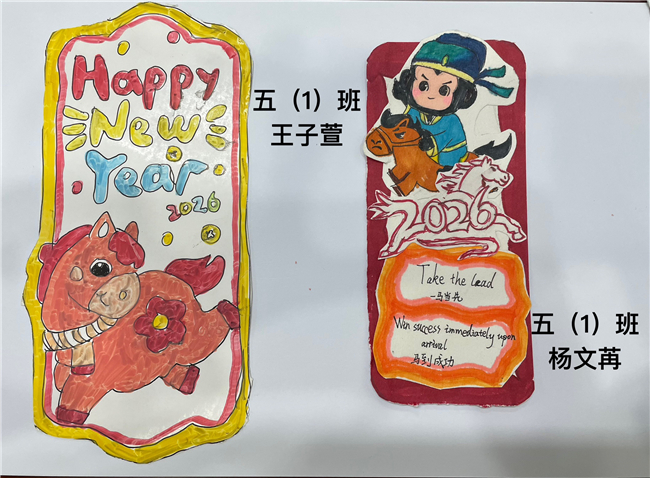 Happy
New
Year
2026
五（1）班
王子萱
2026
Take the lead
一马当先
Win success immediately upon
arrival
马到成功
五（1）班
杨文苒